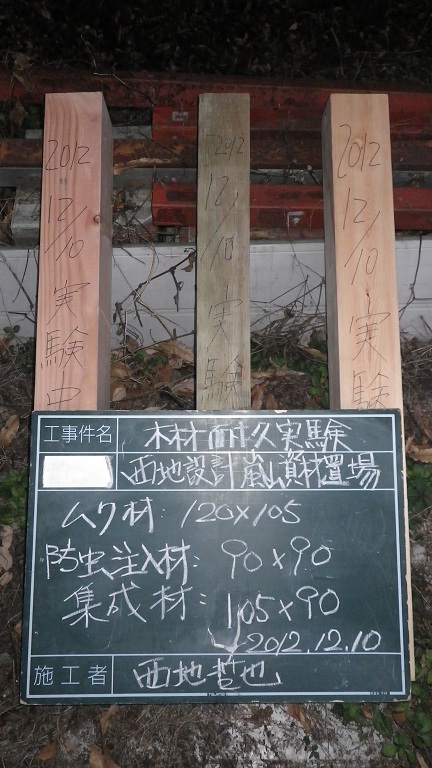 2012
12/10
実験中
2012
12/10
実験
2012
12/10
実験
工事件名 木材耐久実験
西地設計嵐山資材置場
ムク材: 120×105
防虫注入材: 90×90
集成材: 105×90
2012.12.10
施工者 西地哲也